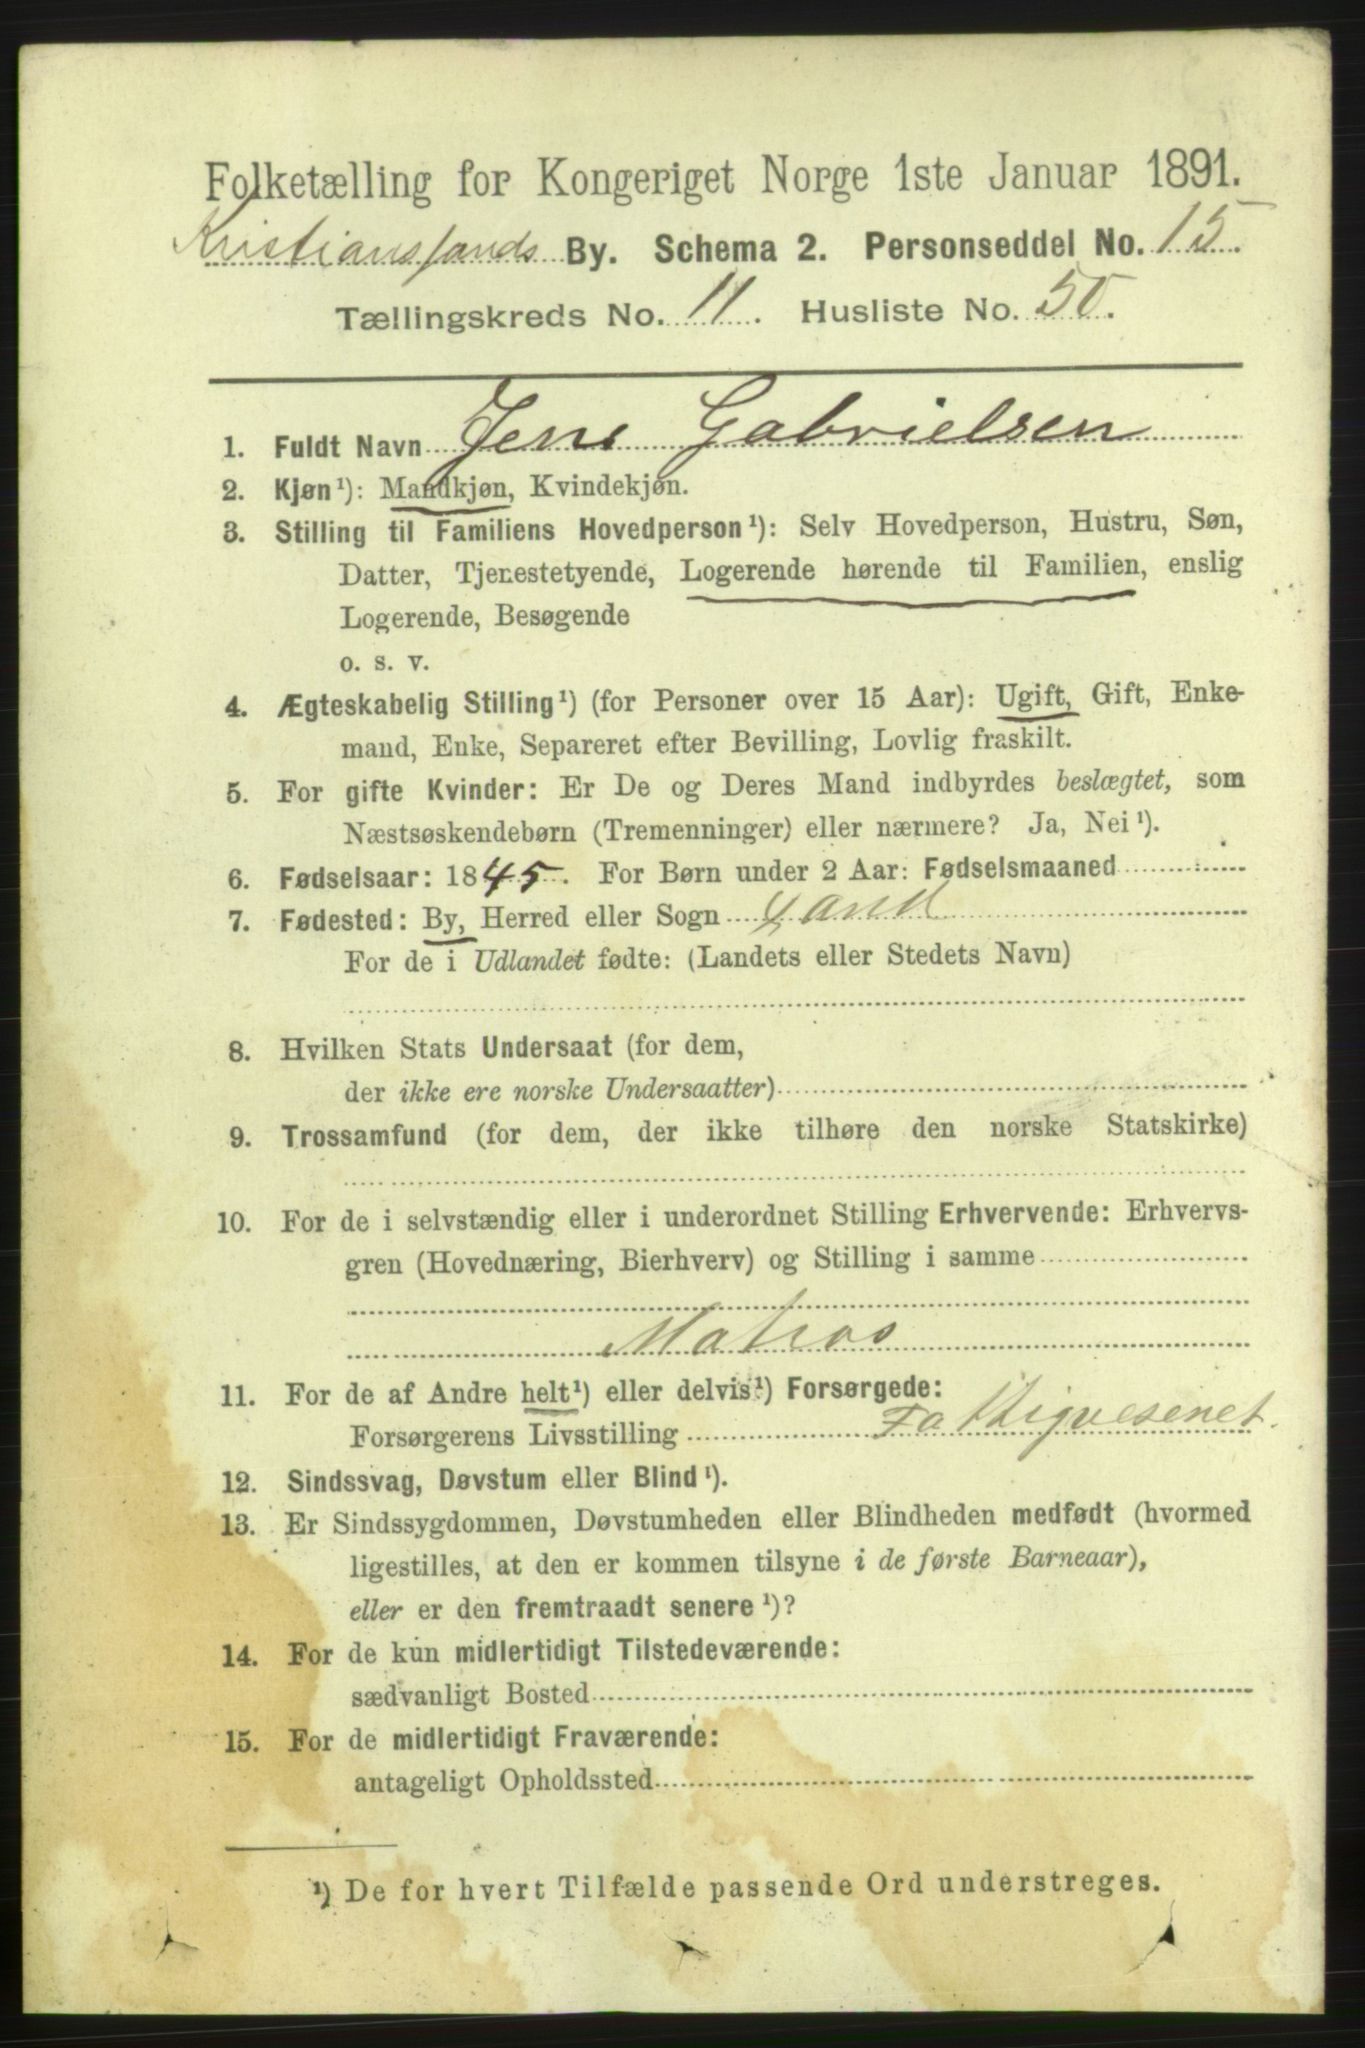 Folketælling for Kongeriget Norge 1ste Januar 1891.
Kristianssands By. Schema 2. Personseddel No. 15.
Tællingskreds No. 11. Husliste No. 50.
1. Fuldt Navn Jens Gabrielsen
2. Kjøn¹): Mandkjøn, Kvindekjøn.
3. Stilling til Familiens Hovedperson¹): Selv Hovedperson, Hustru, Søn,
Datter, Tjenestetyende, Logerende hørende til Familien, enslig
Logerende, Besøgende
o. s. v.
4. Ægteskabelig Stilling¹) (for Personer over 15 Aar): Ugift, Gift, Enke-
mand, Enke, Separeret efter Bevilling, Lovlig fraskilt.
5. For gifte Kvinder: Er De og Deres Mand indbyrdes beslægtet, som
Næstsøskendebørn (Tremenninger) eller nærmere? Ja, Nei¹).
6. Fødselsaar: 1845. For Børn under 2 Aar: Fødselsmaaned
7. Fødested: By, Herred eller Sogn Xsand
For de i Udlandet fødte: (Landets eller Stedets Navn)
8. Hvilken Stats Undersaat (for dem,
der ikke ere norske Undersaatter)
9. Trossamfund (for dem, der ikke tilhøre den norske Statskirke)
10. For de i selvstændig eller i underordnet Stilling Erhvervende: Erhvervs-
gren (Hovednæring, Bierhverv) og Stilling i samme
Matros
11. For de af Andre helt¹) eller delvis¹) Forsørgede:
Forsørgerens Livsstilling Fattigvesenet.
12. Sindssvag, Døvstum eller Blind¹).
13. Er Sindssygdommen, Døvstumheden eller Blindheden medfødt (hvormed
ligestilles, at den er kommen tilsyne i de første Barneaar),
eller er den fremtraadt senere¹)?
14. For de kun midlertidigt Tilstedeværende:
sædvanligt Bosted
15. For de midlertidigt Fraværende:
antageligt Opholdssted
¹) De for hvert Tilfælde passende Ord understreges.